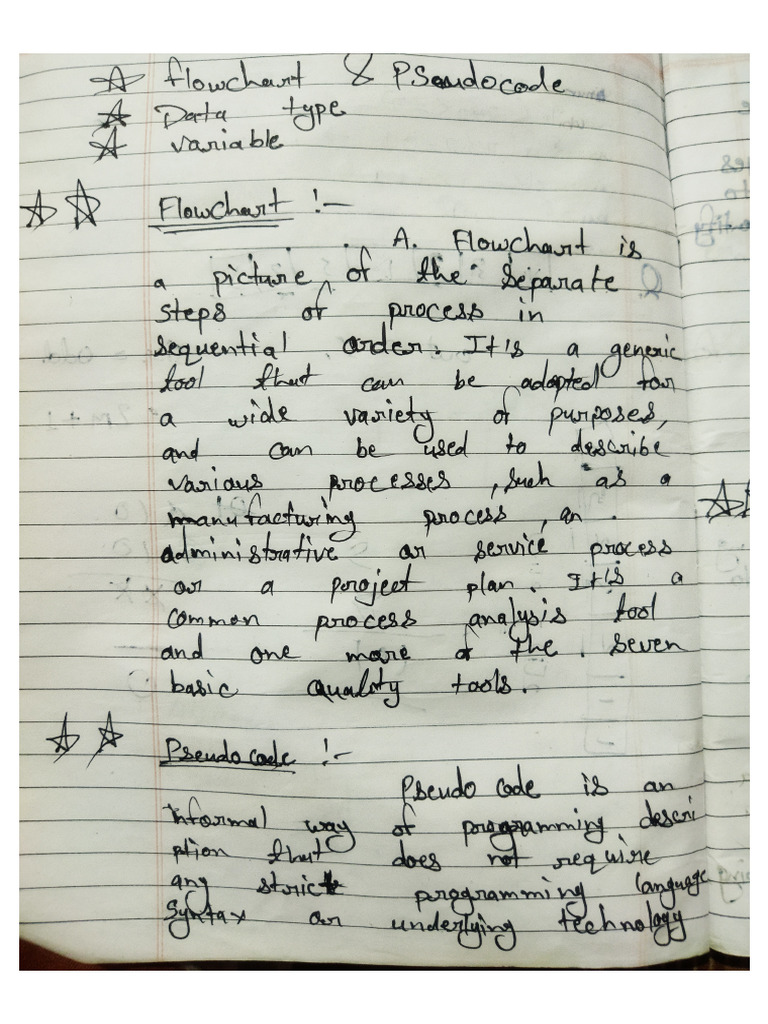 ☆ Flowchart & PSeudocode
☆ Data type
☆ variable
☆ ☆ Flowchart :-
A. Flowchart is
a picture of the separate
steps of process in
sequential order. It's a generic
tool that can be adapted for
a wide variety of purposes,
and can be used to describe
various processes, such as a
manufacturing process, an.
administrative or service process
or a project plan. It's a
common process analysis tool
and one more of the. seven
basic quality tools.
☆ ☆ Pseudocode :-
Pseudo code is an
Informal way of programming descri
ption that does not require
any strict programming language
Syntax or underlying technology